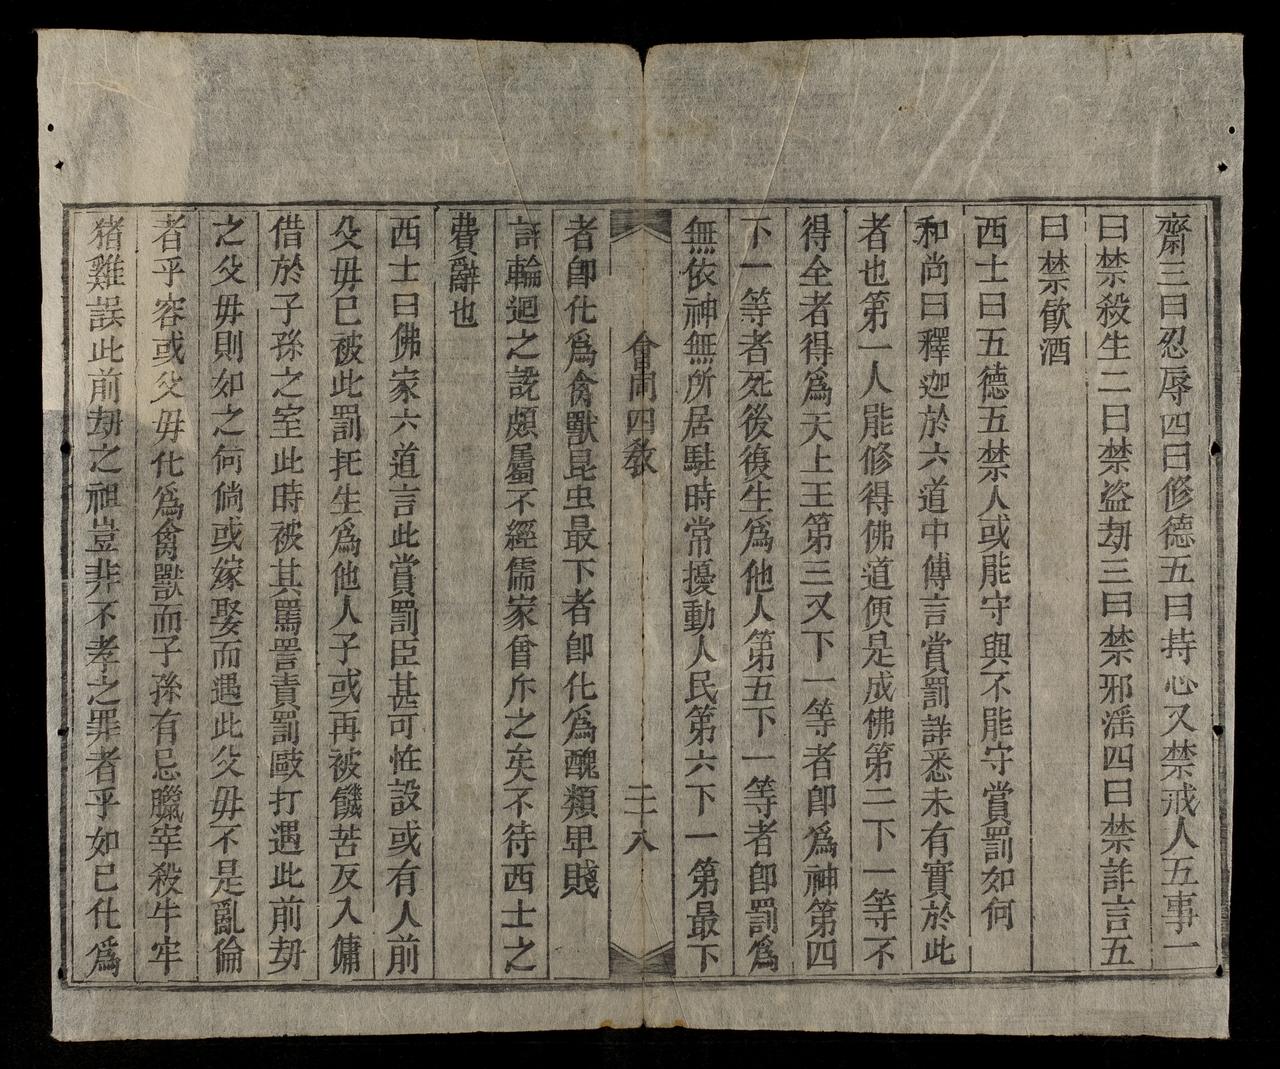 齋三曰忍辱四曰修德五曰持心又禁戒人五事一
曰禁殺生二曰禁盗刼三曰禁邪滛四曰禁詐言五
曰禁飲酒
西士曰五德五禁人或能守與不能守賞罰如何
和尚曰釋迦於六道中傳言賞罰詳悉未有實於此
者也第一人能修得佛道便是成佛第二下一等不
得全者得爲天上王第三又下一等者卽爲神第四
下一等者死後復生爲他人第五下一等者卽罰爲
無依神無所居駐時常擾動人民第六下一第最下
會同四教 二十八
者卽化爲禽獸昆虫最下者卽化爲醜類畢賤
許輪廻之説頗屬不經儒家曾斥之矣不待西士之
費辭也
西士曰佛家六道言此賞罰臣甚可恠設或有人前
父毋已被此罰托生爲他人子或再被饑苦反入傭
借於子孫之室此時被其罵詈責罰敺打遇此前刼
之父毋則如之何倘或嫁娶而遇此父毋不是亂倫
者乎容或父毋化爲禽獸而子孫有忌臘宰殺牛牢
猪雞誤此前刼之祖豈非不孝之罪者乎如已化爲